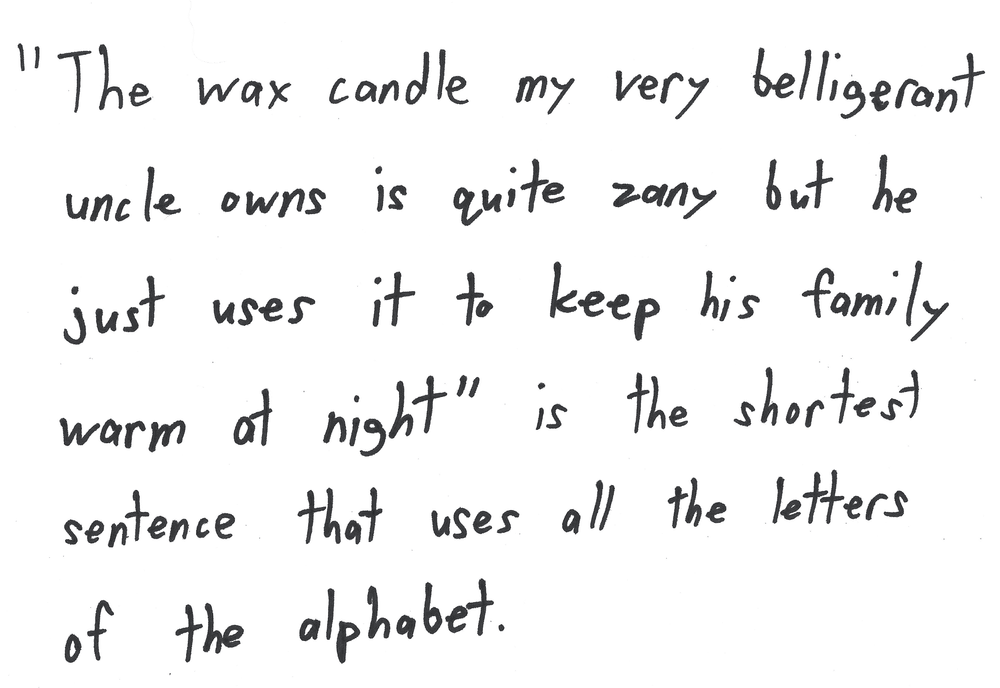 "The wax candle my very belligerant
uncle owns is quite zany but he
just uses it to keep his family
warm at night" is the shortest
sentence that uses all the letters
of the alphabet.